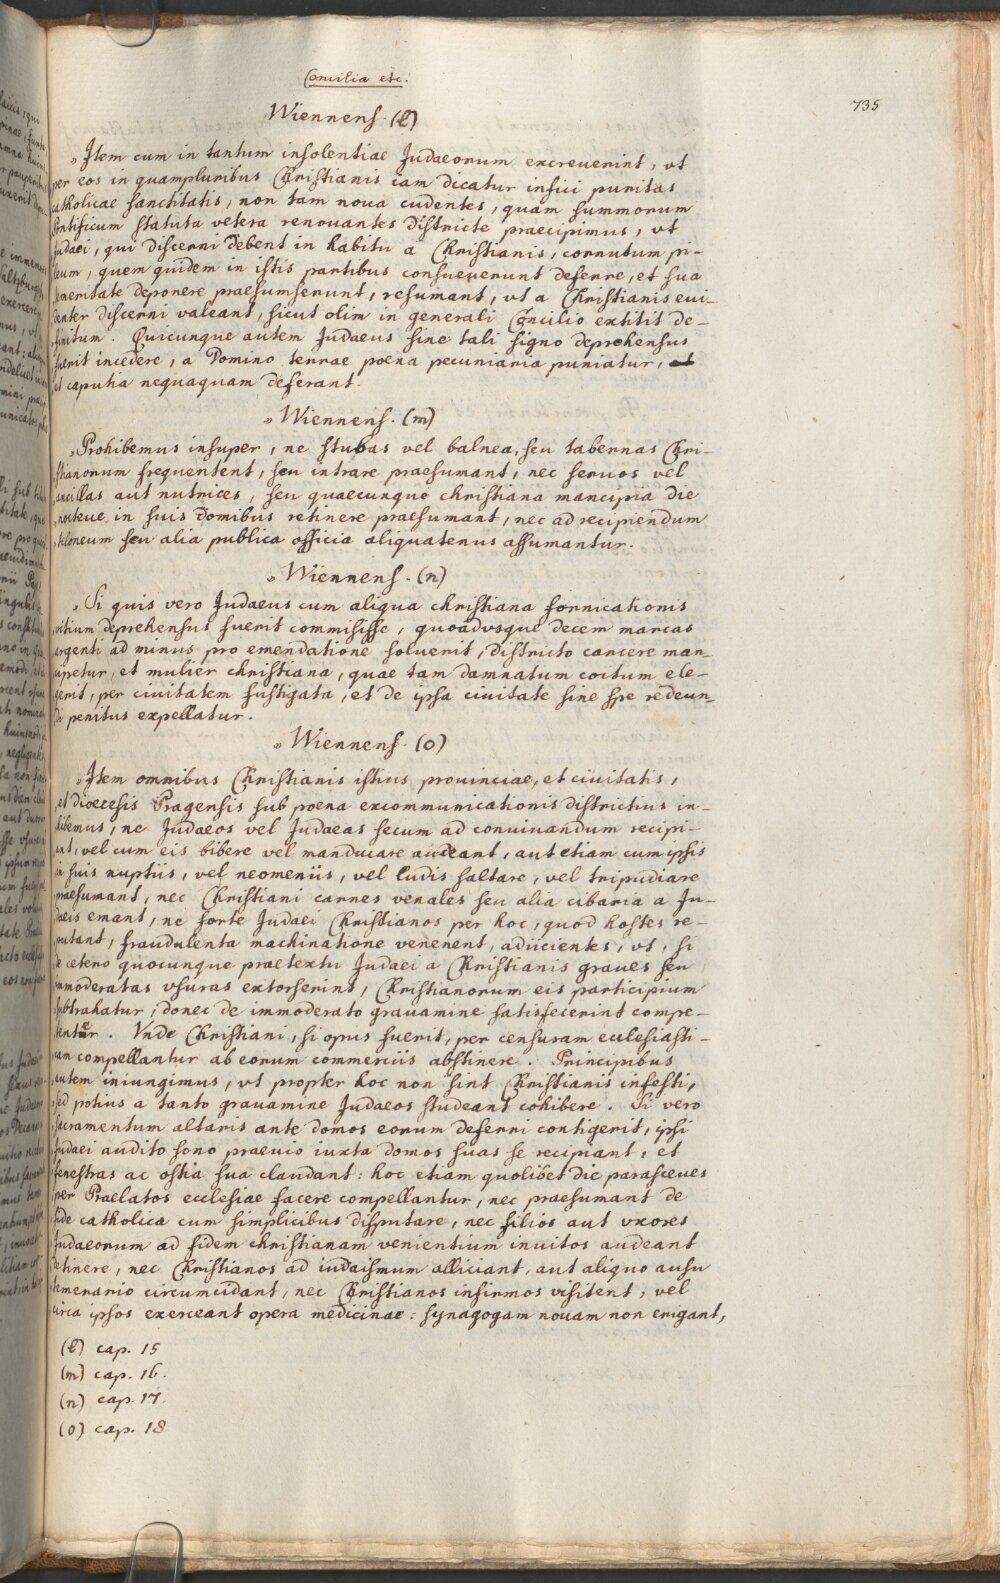 Concilia etc.
735
Wiennens. (l)
„Item cum in tantum insolentiae Judaeorum excreuerint, vt
per eos in quampluribus Christianis iam dicatur infici puritas
catholicae sanctitatis, non tam noua cudentes, quam summorum
Pontificum statuta vetera renouantes districte praecipimus, vt
Judaei, qui discerni debent in habitu a Christianis, cornutum pi-
leum, quem quidem in istis partibus consueuerunt deferre, et sua
temeritate deponere praesumserunt, resumant, vt a Christianis eui-
denter discerni valeant, sicut olim in generali Concilio extitit de-
finitum. Quicunque autem Judaeus sine tali signo deprehensus
fuerit incedere, a Domino terrae poena pecuniaria puniatur,
et caputia nequaquam deferant.
„Wiennens. (m)
„Prohibemus insuper, ne stubas vel balnea, seu tabernas Chri-
stianorum frequentent, seu intrare praesumant, nec seruos vel
ancillas aut nutrices, seu quaecunque christiana mancipia die
nocteue in suis domibus retinere praesumant, nec ad recipiendum
teloneum seu alia publica officia aliquatenus assumantur.
„Wiennens. (n)
„Si quis vero Judaeus cum aliqua christiana fornicationis
vitium deprehensus fuerit commisisse, quoadvsque decem marcas
argenti ad minus pro emendatione soluerit, districto carcere man-
cipetur, et mulier christiana, quae tam damnatum coitum ele-
gerit, per ciuitatem fustigata, et de ipsa ciuitate sine spe redeun-
di penitus expellatur.
„Wiennens. (o)
„Item omnibus Christianis istius prouinciae, et ciuitatis,
et dioecesis Pragensis sub poena excommunicationis districtius in-
hibemus, ne Judaeos vel Judaeas secum ad conuiuandum recipi-
ant, vel cum eis bibere vel manducare audeant, aut etiam cum ipsis
in suis nuptiis, vel neomeniis, vel ludis saltare, vel tripudiare
praesumant, nec Christiani carnes venales seu alia cibaria a Ju-
daeis emant, ne forte Judaei Christianos per hoc, quod hostes re-
putant, fraudulenta machinatione venenent, adiicientes, vt, si
de cetero quocunque praetextu Judaei a Christianis graues seu
immoderatas vsuras extorserint, Christianorum eis participium
subtrahatur, donec de immoderato grauamine satisfecerint compe-
tenter. Vnde Christiani, si opus fuerit, per censuram ecclesiasti-
cam compellantur ab eorum commerciis abstinere. Principibus
autem iniungimus, vt propter hoc non sint Christianis infesti,
sed potius a tanto grauamine Judaeos studeant cohibere. Si vero
sacramentum altaris ante domos eorum deferri contigerit, ipsi
Judaei audito sono praeuio iuxta domos suas se recipiant, et
fenestras ac ostia sua claudant: hoc etiam quolibet die parasceues
per Praelatos ecclesiae facere compellantur, nec praesumant de
fide catholica cum simplicibus disputare, nec filios aut vxores
Judaeorum ad fidem christianam venientium inuitos audeant
detinere, nec Christianos ad iudaismum alliciant, aut aliquo ausu
temerario circumcidant, nec Christianos infirmos visitent, vel
circa ipsos exerceant opera medicinae: synagogam nouam non erigant,
(l) cap. 15
(m) cap. 16.
(n) cap. 17.
(o) cap. 18